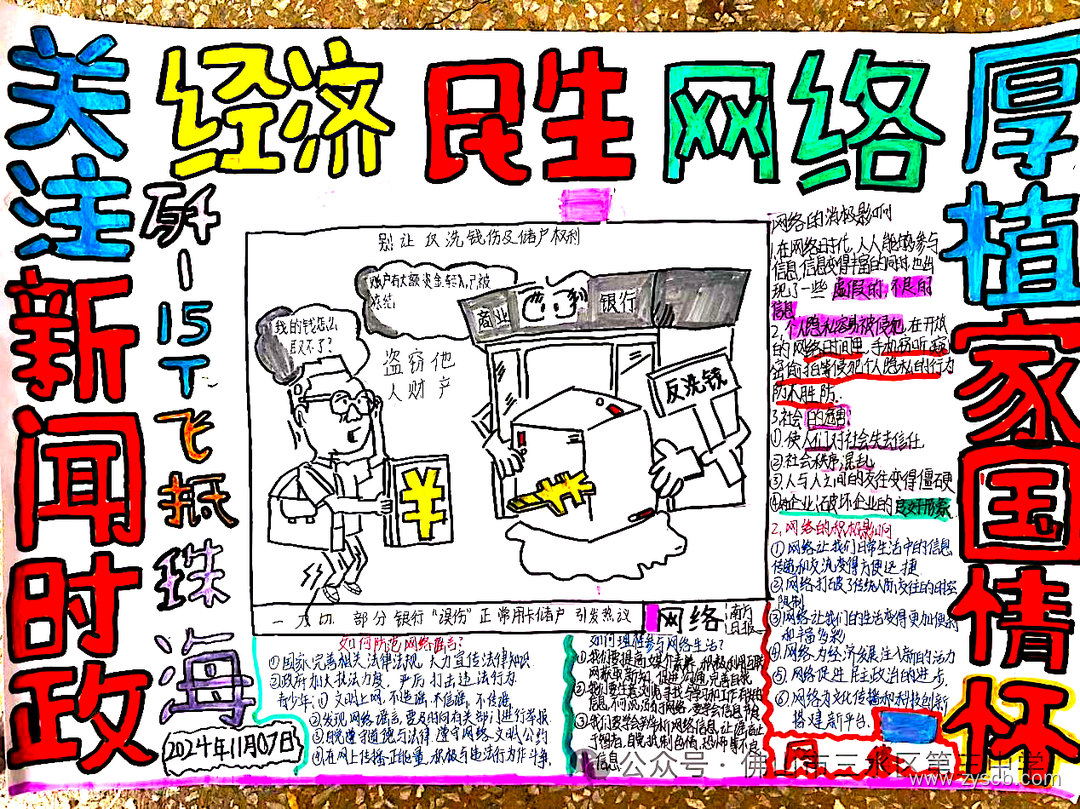 关注新闻时政
经济 民生 网络
厚植家国情怀
歼-15T飞抵珠海
2024年11月07日
别让反洗钱伤及储户权利
账户有大额资金转入,已被
冻结。
我的钱怎么
取不了?
盗窃他
人财产
商业
银行
反洗钱
¥
¥
一刀切 部分银行“误伤”正常用卡储户 引发热议
网络
南方
日报
网络的消极影响
1.在网络时代,人人能够参与
信息,信息变得丰富的同时,也出
现了一些虚假的,不良的
信息
2.个人隐私容易被侵犯,在开放
的网络时间里,手机窃听,窥
行为
防不胜防.
3.社会的危害:
①使人们对社会失去信任
②社会秩序混乱
③人与人之间的交往变得僵硬
破坏企业的良好形象
2,网络的积极影响
①网络让我们日常生活中的信息
传递和交流变得方便迅捷
②网络打破了传统人际交往的时空
限制
③网络让我们的生活变得更加便利
和丰富多彩
④网络为经济发展注入新的活力
⑤网络促进民主政治的进步
⑥网络为文化传播和科技创新
搭建新平台
如何防范网络谣言?
①国家完善相关法律法规,大力宣传法律知识
②政府加大执法力度,严厉打击违法行为
青少年:①文明上网,不造谣,不信谣,不传谣
②发现网络谣言,要及时向有关部门进行举报
③自觉遵守道德与法律 遵守网络文明公约
④在网上传播正能量,积极与违法行为作斗争
如何理性参与网络生活?
①我们要提高媒介素养,积极利用互联
网获取新知、促进沟通、完善自我
公众号·佛山市三水区第三中学
www.zyscb.com